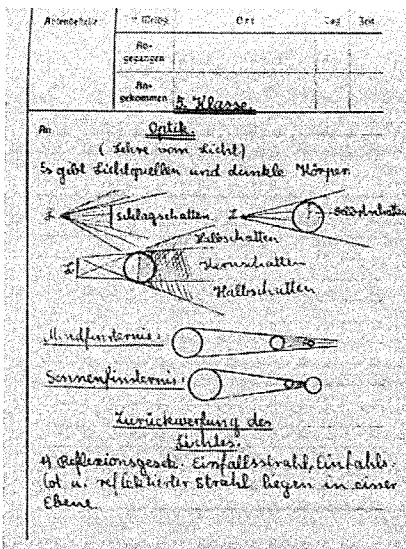 Ort
Tag
Zeit
An-
gegangen
An-
gekommen
5. Klasse.
An
Optik.
( Lehre vom Licht)
Es gibt Lichtquellen und dunkle Körper
L
Schlagschatten
L
Halbschatten
L
Kernschatten
Halbschatten
Mondfinsternis:
Sonnenfinsternis:
Zurückwerfung des
Lichtes.
Reflexionsgesetz. Einfallsstrahl, Einfahls-
lot u. reflektierter Strahl liegen in einer
Ebene